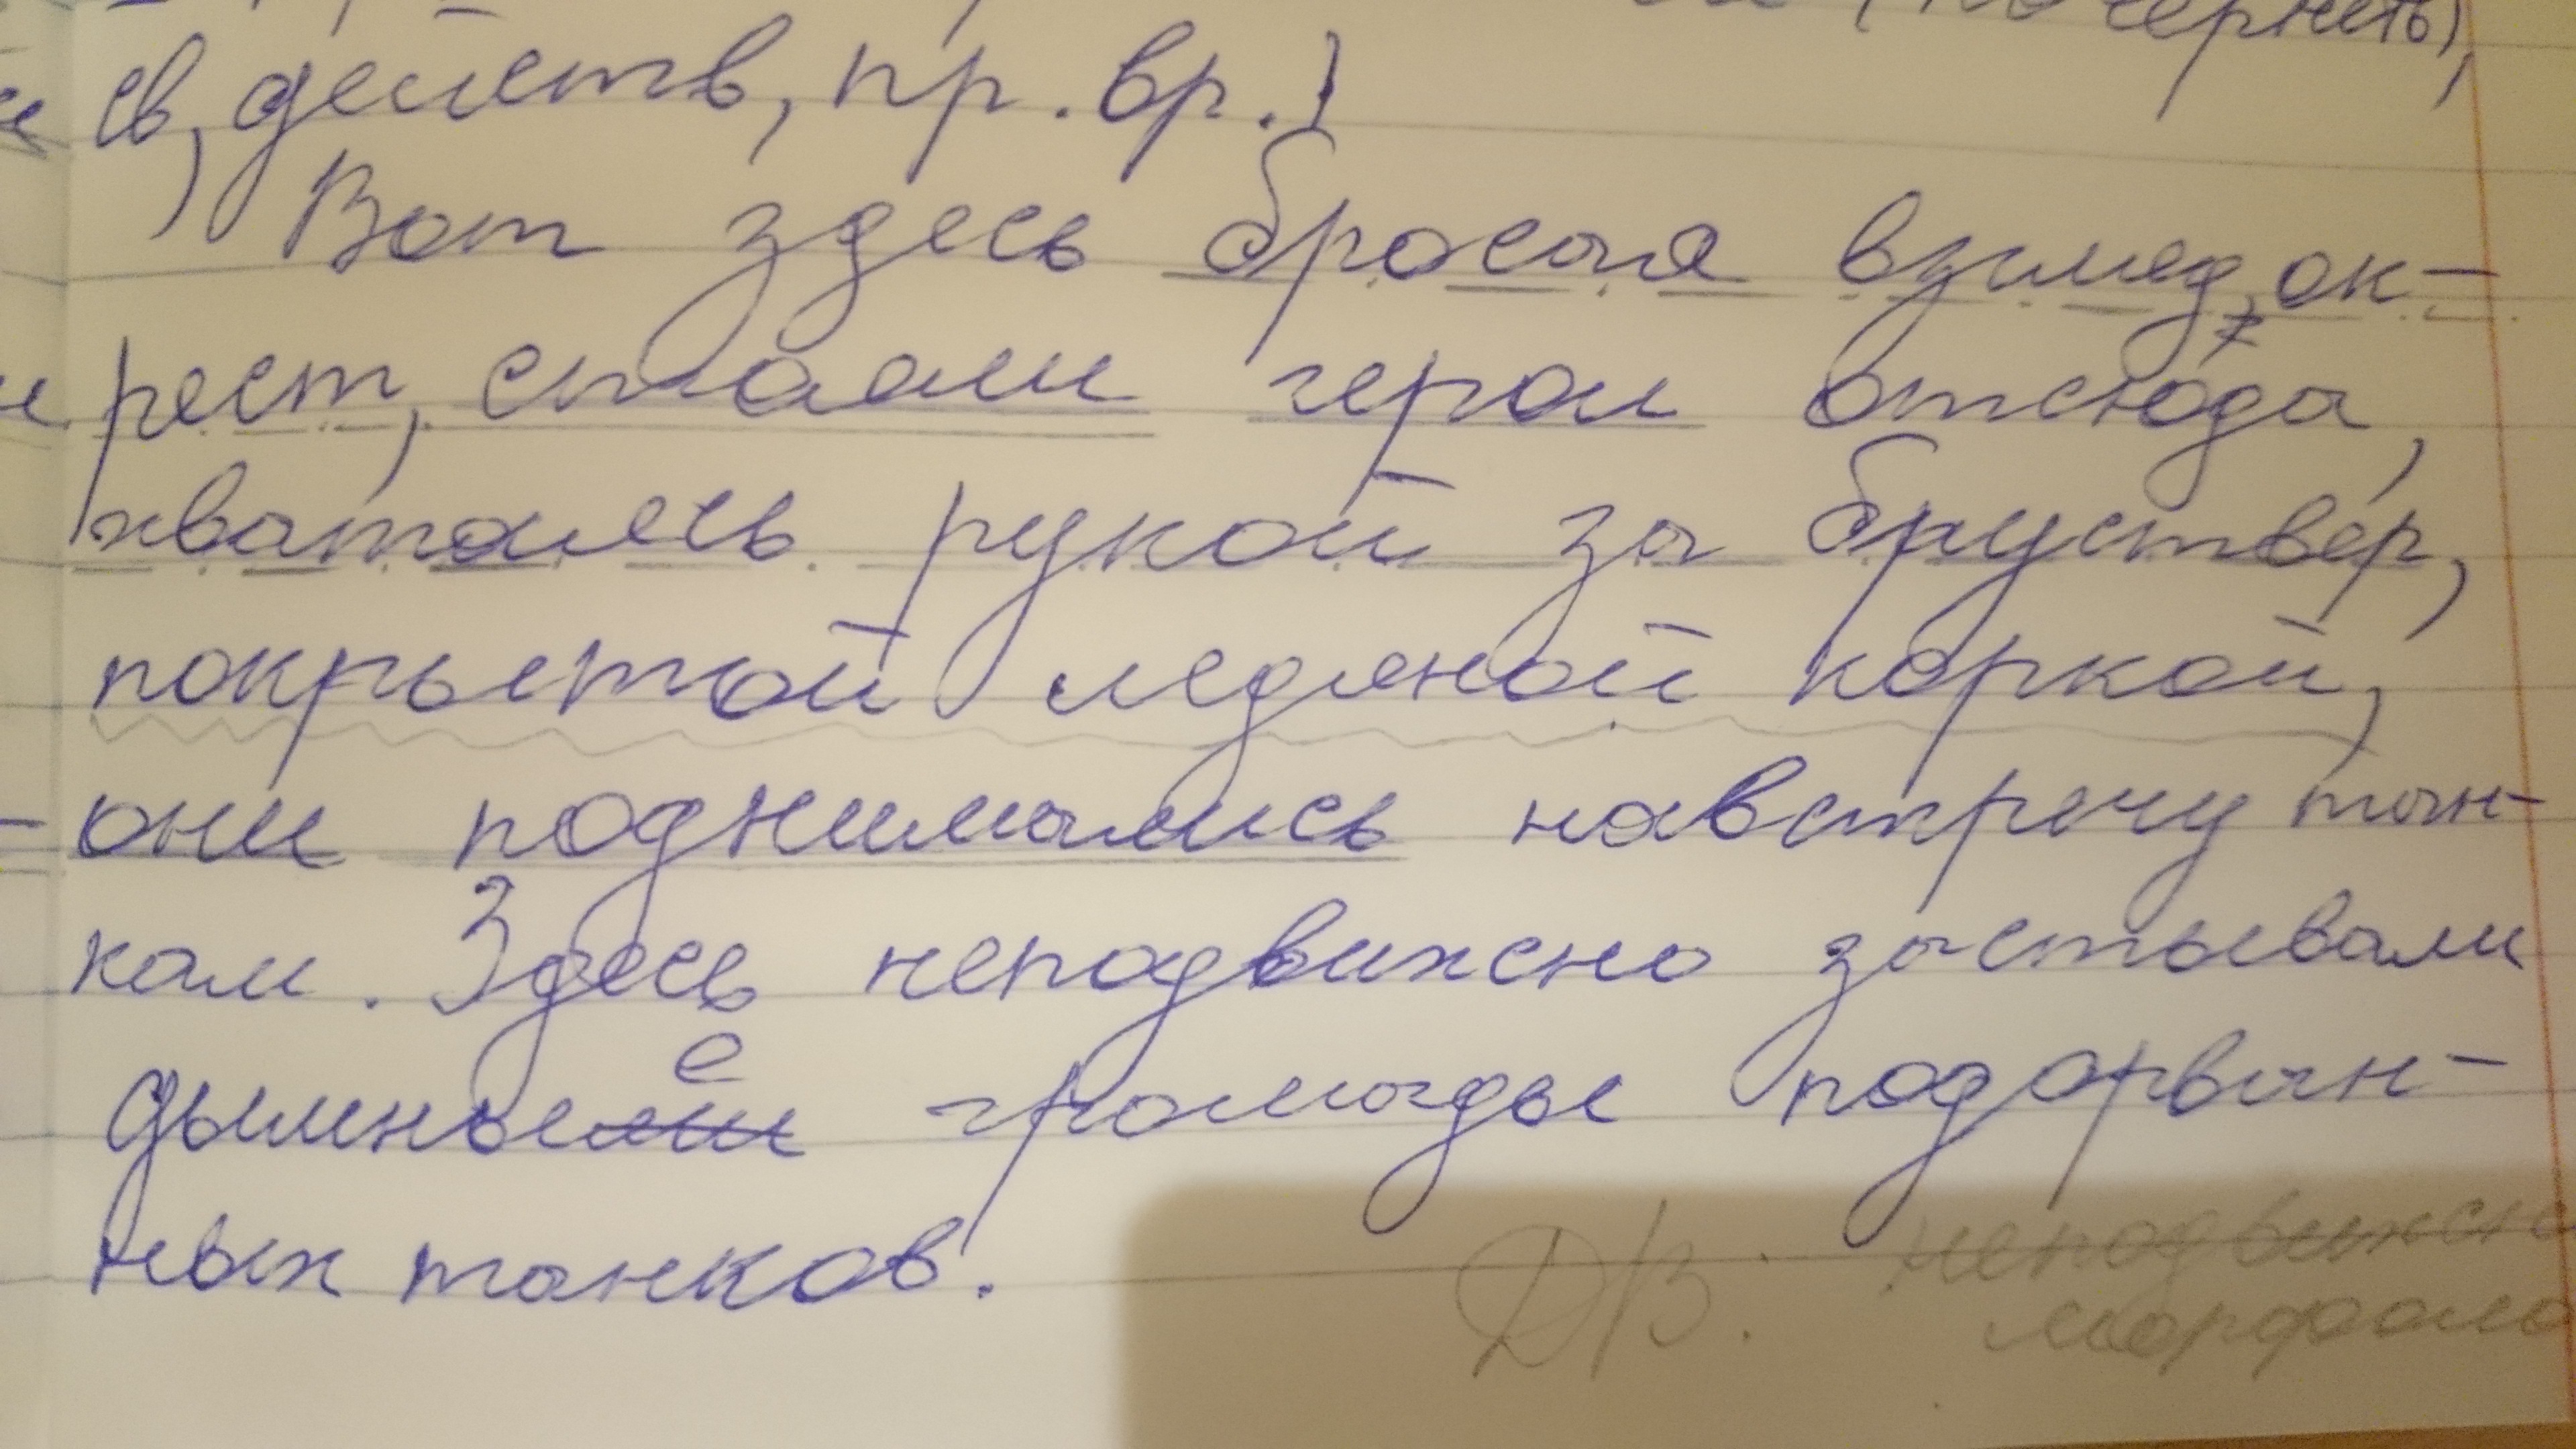 (почернеть),
св, действ, пр. вр.)
Вот здесь бросая взгляд ок-
рест, стояли герои отсюда,
хватаясь рукой за бруствер,
покрытой ледяной коркой,
они поднимались навстречу тан-
кам. Здесь неподвижно застывали
дымные громады подорван-
ных танков.
Д/З. неподвижно
морфоло